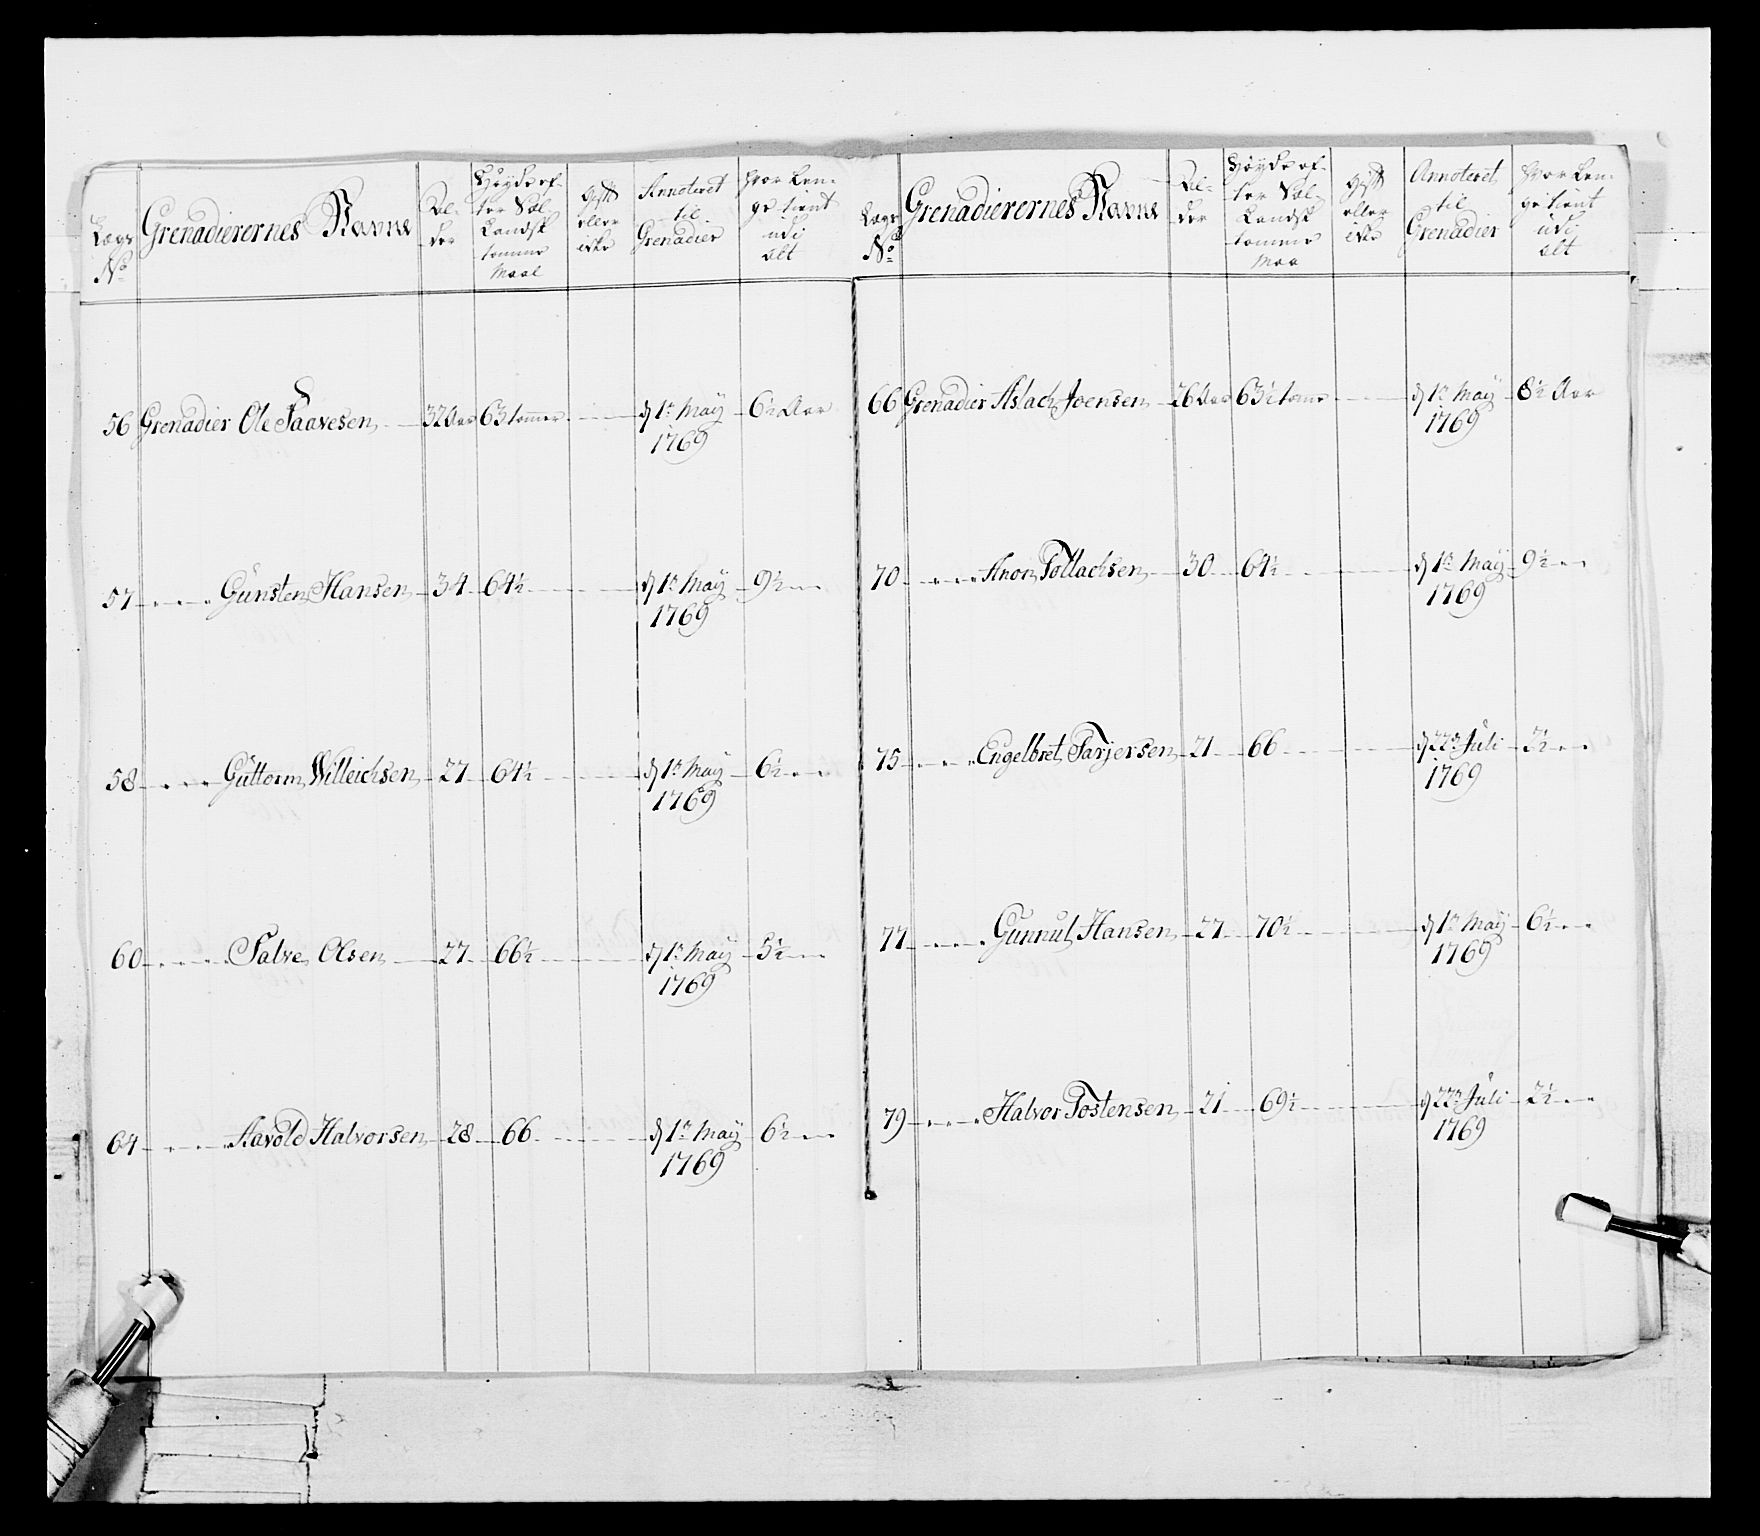 Lægs No
Grenadierernes Navne
Al-
der
Høyde ef-
ter Sæl
Landsk
tomme
Maal
Gift
eller
ikke
Annoteret
til
Grenadier
hvor Len-
ge tient
udi
alt
56 Grenadier Ole Taavesen 32 Aar 63 tommer d 1n Maÿ 1769 6½ Aar
57 Gunsten Hansen 34 64½ d 1n Maÿ 1769 9½
58 Guttorm Willeichsen 27 64½ d 1n Maÿ 1769 6½
60 Salve Olsen 27 66½ d 1n Maÿ 1769 5½
64 Aavold Halvorsen 28 66 d 1n Maÿ 1769 6½
Lægs No
Grenadierernes Navne
Al-
der
Høyde ef-
ter Sæl
Landsk
tomme
Maa
Gift
eller
ikke
Annoteret
til
Grenadier
hvor Len-
ge tient
udi
alt
66 Grenadier Aslach Joensen 26 Aar 63½ tomr d 1n Maÿ 1769 8½ Aar
70 Anon Tollachsen 30 64½ d 1n Maÿ 1769 9½
75 Engelbret Tarjersen 21 66 d 22n Juli 1769 2½
77 Gunnul Hansen 27 70½ d 1n Maÿ 1769 6½
79 Halvor Tostensen 21 69½ d 22n Juli 1769 2½